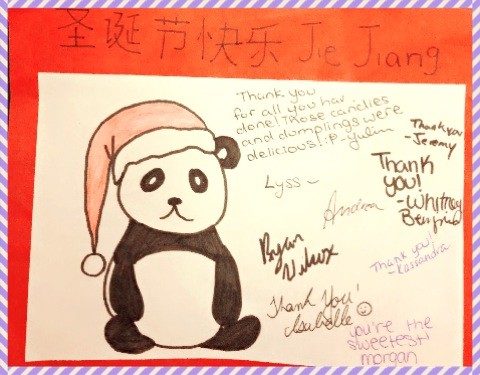 圣诞节快乐 Jie Jiang
Thank you
for all you hav
done! Those candies
and dumplings were
delicious! :P -Yulin
Thank you
-Jeremy
Lyss ~
Thank
you!
-Whitney
Andrea
Ryan
Thank you!
-Kassandra
Thank You!
Isabelle ☺
you're the
sweetest!
morgan